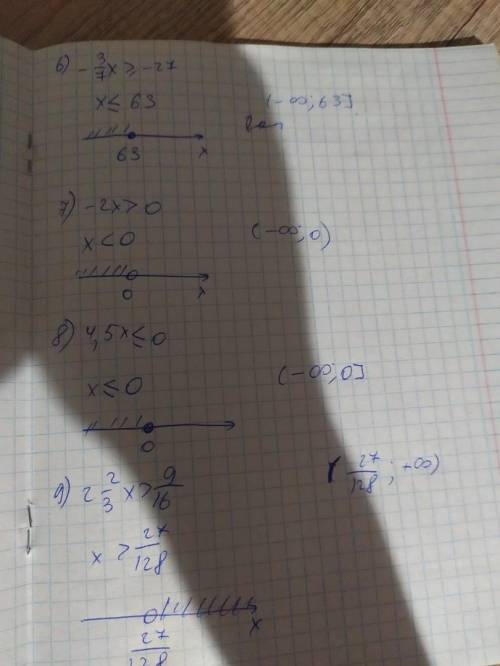 6) -3/7x ≥ -27
x ≤ 63 (-∞; 63]
63 x
7) -2x > 0
x < 0 (-∞; 0)
0 x
8) 4,5x ≤ 0
x ≤ 0 (-∞; 0]
0
9) 2 2/3 x > 9/16 (27/128; +∞)
x > 27/128
x
27/128